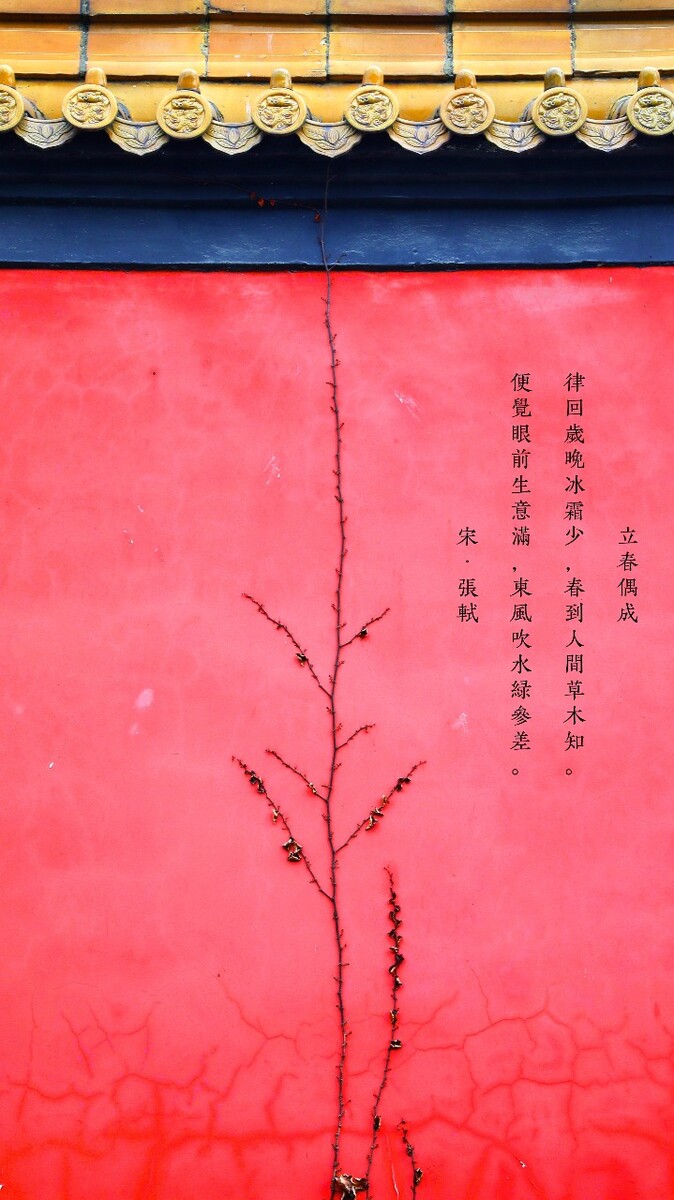 立春偶成
律回歲晚冰霜少，春到人間草木知。
便覺眼前生意滿，東風吹水綠參差。
宋·張軾